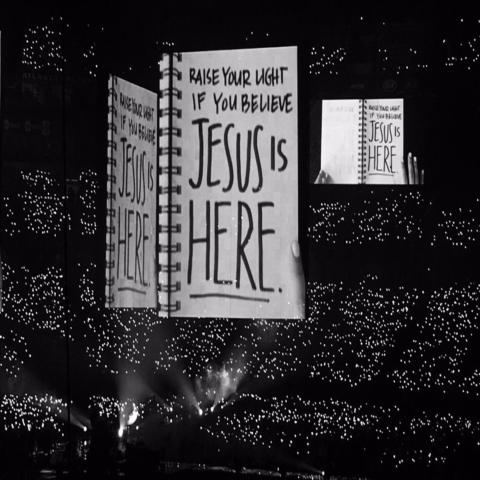 RAISE YOUR LIGHT
IF YOU BELIEVE
JESUS IS
HERE.
RAISE YOUR LIGHT
IF YOU BELIEVE
JESUS IS
HERE.
RAISE YOUR LIGHT
IF YOU BELIEVE
JESUS IS
HERE.